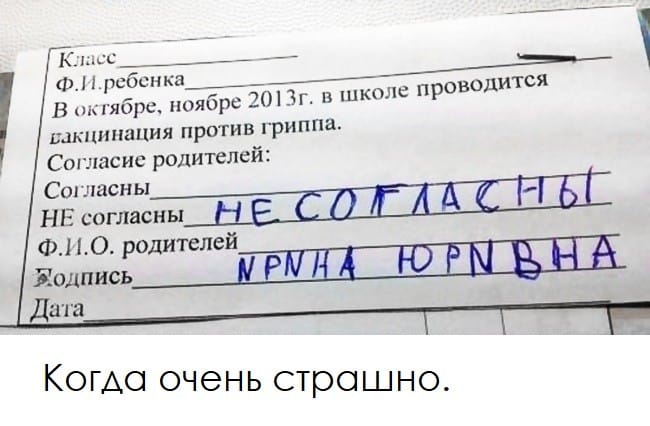 Класс
Ф.И.ребенка
В октябре, ноябре 2013г. в школе проводится
вакцинация против гриппа.
Согласие родителей:
Согласны
НЕ согласны НЕ СОГЛАСНЫ
Ф.И.О. родителей
Подпись ИРИНА ЮРИВНА
Дата
Когда очень страшно.